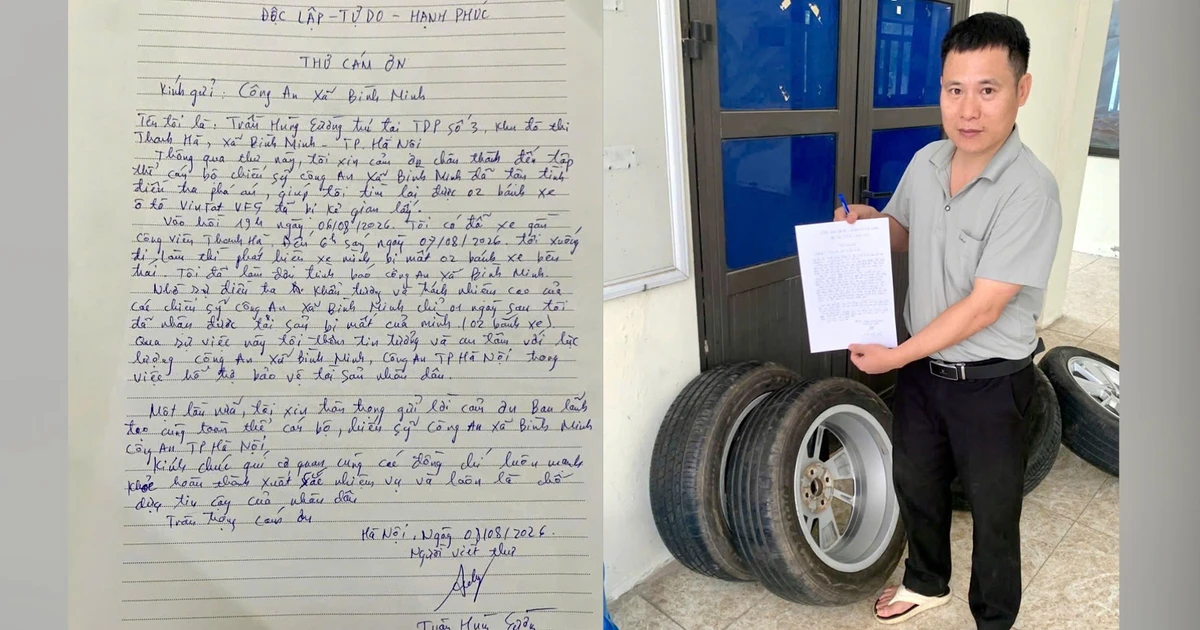 ĐỘC LẬP - TỰ DO - HẠNH PHÚC
THƯ CẢM ƠN
Kính gửi: Công An Xã Bình Minh
Tên tôi là: Trần Hùng Cường trú tại TDP Số 3, khu đô thị
Thanh Hà, xã Bình Minh - TP. Hà Nội
Thông qua thư này, tôi xin cảm ơn chân thành đến tập
thể cán bộ chiến sỹ công An Xã Bình Minh đã tận tình
điều tra phá án, giúp tôi tìm lại được 02 bánh xe
ô tô VinFat VF5 đã bị kẻ gian lấy.
Vào hồi 19h ngày 06/08/2026. Tôi có đỗ xe gần
Công viên Thanh Hà. Đến 6h sáng ngày 07/08/2026. tôi xuống
đi làm thì phát hiện xe mình bị mất 02 bánh xe bên
trái. Tôi đã làm đơn trình báo công An Xã Bình Minh.
Nhờ sự điều tra khẩn trương và trách nhiệm cao của
các chiến sỹ công An Xã Bình Minh chỉ 01 ngày sau tôi
đã nhận được tài sản bị mất của mình. (02 bánh xe)
Qua sự việc này tôi thêm tin tưởng và an tâm với lực
lượng công An Xã Bình Minh, Công An TP Hà Nội trong
việc hỗ trợ bảo vệ tài sản nhân dân.
Một lần nữa, tôi xin trân trọng gửi lời cảm ơn Ban lãnh
đạo cùng toàn thể cán bộ, chiến sỹ Công An Xã Bình Minh
Công An TP Hà Nội
Kính chúc quí cơ quan cùng các đồng chí luôn mạnh
khoẻ hoàn thành xuất sắc nhiệm vụ và luôn là chỗ
dựa tin cậy của nhân dân
Trân trọng cảm ơn
Hà Nội, Ngày /08/2026.
Người viết thư
Trần Hùng Cường